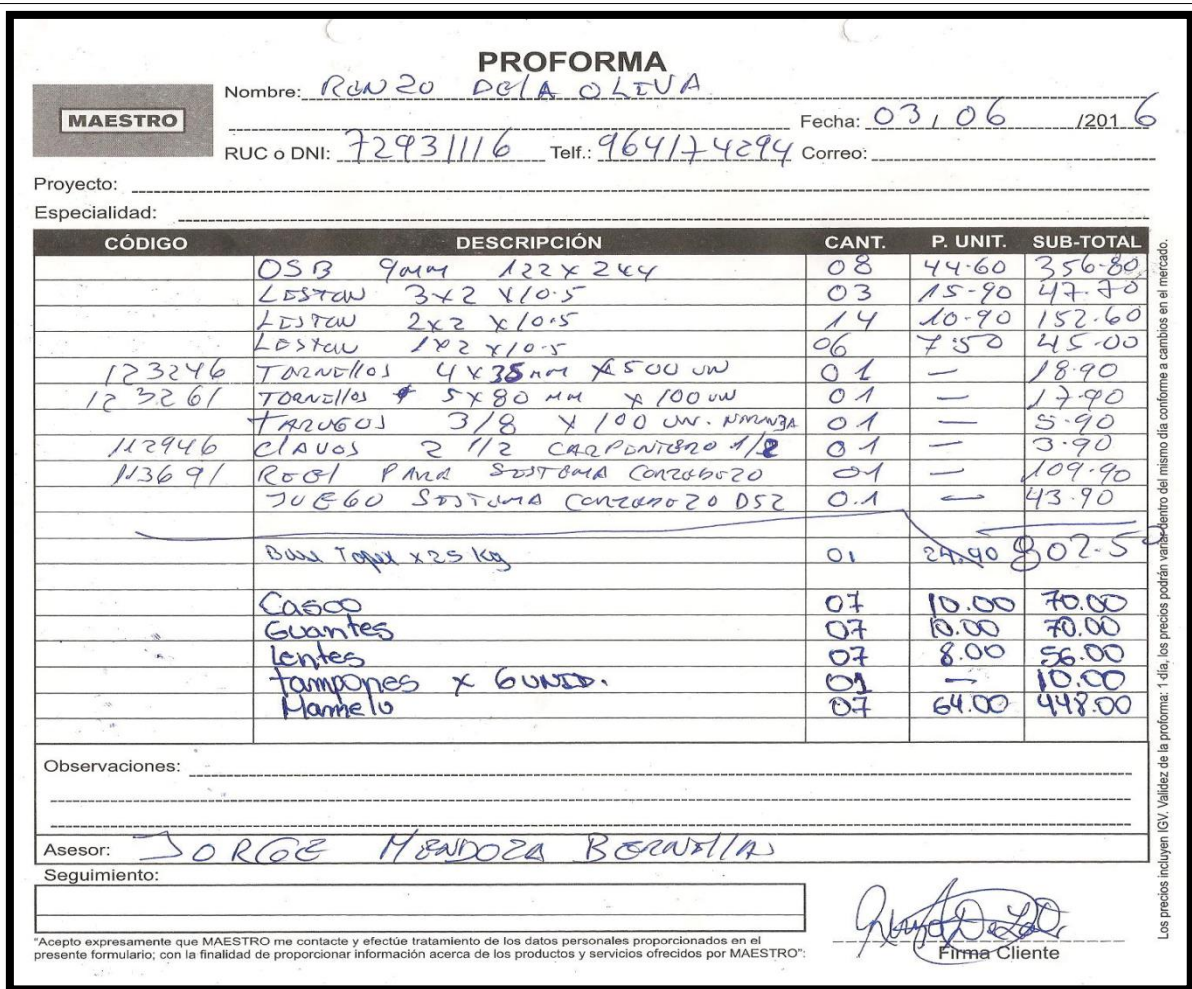 PROFORMA
MAESTRO
Nombre: RENZO DE LA OLIVA
Fecha: 03 / 06 /2016
RUC o DNI: 72931116 Telf.: 964174294 Correo:
Proyecto:
Especialidad:
CÓDIGO DESCRIPCIÓN CANT. P. UNIT. SUB-TOTAL
OSB 9mm 122 x 244 08 44.60 356.80
LISTON 3x2 x10.5 03 15-90 47.70
LISTON 2x2 x10.5 14 10-90 152.60
LISTON 1x2 x10.5 06 7.50 45.00
123246 TORNILLOS 4 x 35 mm x 500 UN 01 — 18.90
123261 TORNILLOS 5x80 MM x 100 UN 01 — 17.90
TARUGOS 3/8 x 100 UN. NARANJA 01 — 5.90
112946 CLAVOS 2 1/2 CARPINTERO 1/2 01 — 3.90
113691 RIEL PARA SISTEMA CORREDIZO 01 — 109.90
JUEGO SISTEMA CORREDIZO D52 0.1 — 43.90
802.50
Base Topex x 25 kg 01 24.90
Casco 07 10.00 70.00
Guantes 07 10.00 70.00
Lentes 07 8.00 56.00
tampones x 6 UNID. 01 — 10.00
Mamelu 07 64.00 448.00
Observaciones:
Asesor: JORGE MENDOZA
Seguimiento:
"Acepto expresamente que MAESTRO me contacte y efectúe tratamiento de los datos personales proporcionados en el
presente formulario; con la finalidad de proporcionar información acerca de los productos y servicios ofrecidos por MAESTRO":
Firma Cliente
Los precios incluyen IGV. Validez de la proforma: 1 día, los precios podrán variar dentro del mismo día conforme a cambios en el mercado.